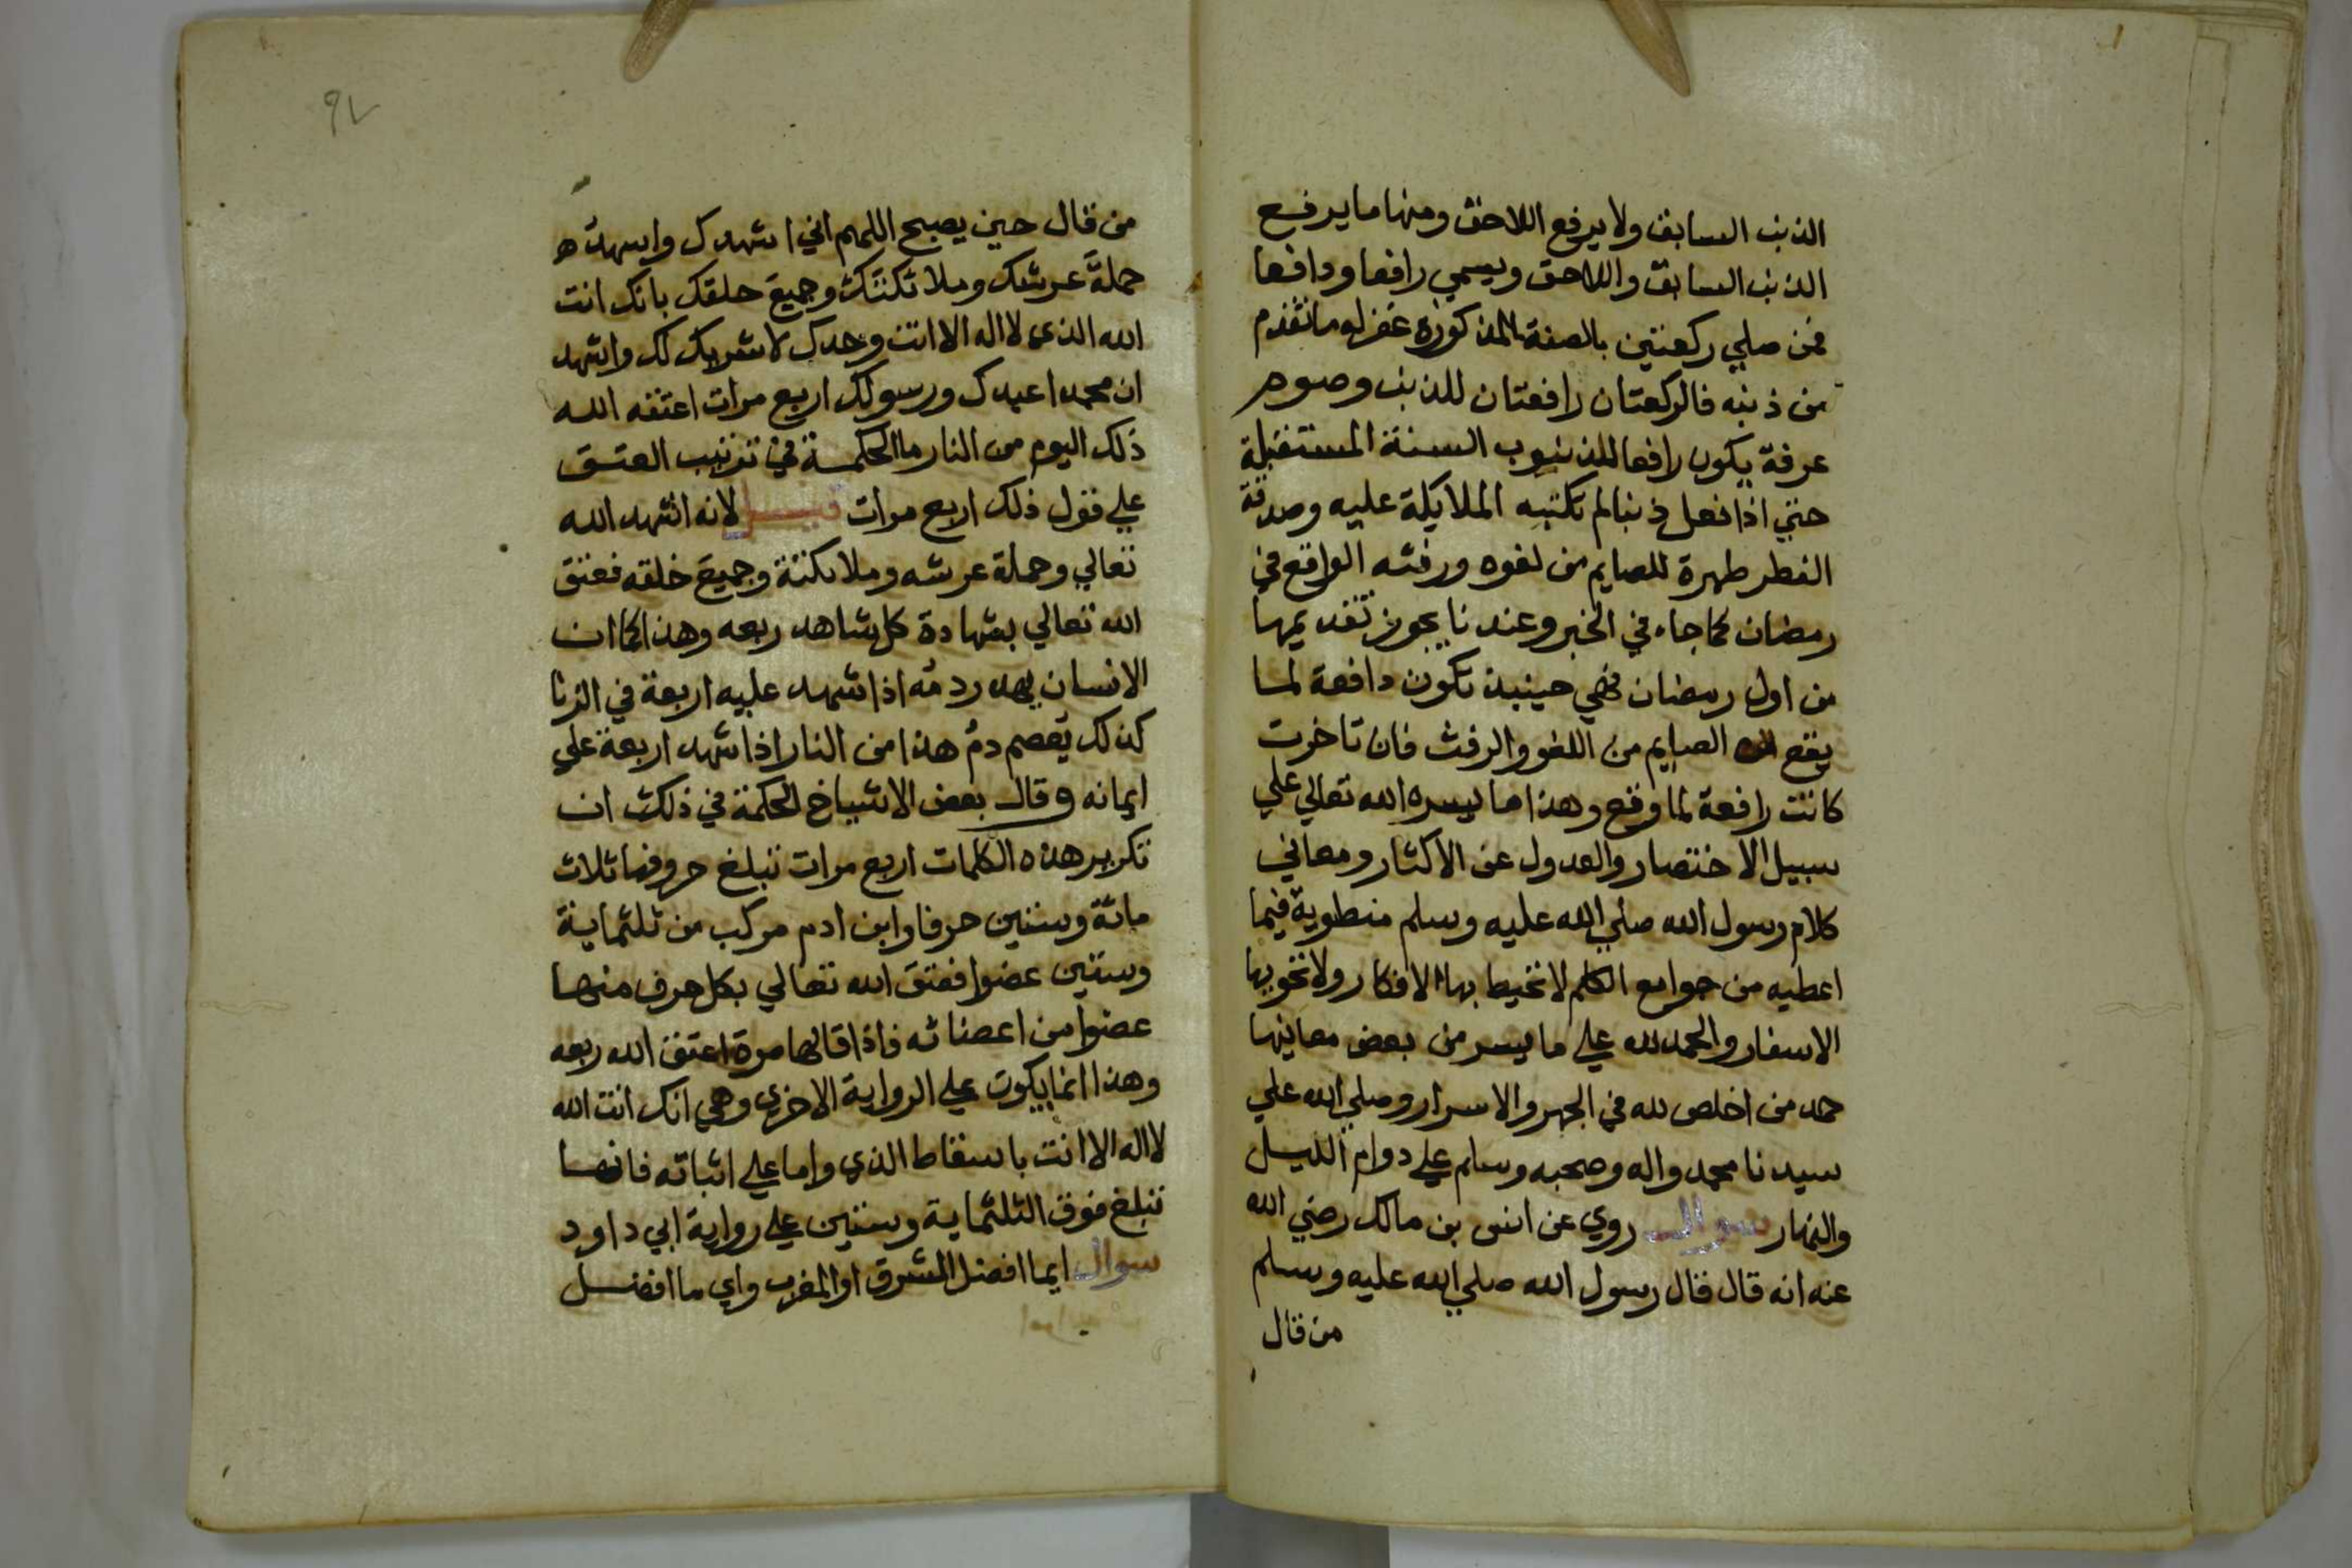 الذنب السابق ولا يرفع اللاحق ومنها ما يرفع
الذنب السابق واللاحق ويسمي رافعا ودافعا
فمن صلي ركعتين بالصفة المذكورة غفر له ما تقدم
من ذنبه فالركعتان رافعتان للذنب وصوم
عرفة يكون رافعا للذنوب السنة المستقبلة
حتي اذا فعل ذنبا لم تكتبه الملايكة عليه وصدقة
الفطر طهرة للصايم من لغوه ورفثه الواقع في
رمضان كما جاء في الخبر وعندنا يجوز تقديمها
من اول رمضان فهي حينيذ تكون دافعة لما
يقع الصايم من اللغو والرفث فان تاخرت
كانت رافعة لما وقع وهذا ما يسره الله تعالي علي
سبيل الاختصار والعدول عن الاكثار ومعاني
كلام رسول الله صلي الله عليه وسلم منطوية فيما
اعطيه من جوامع الكلم لا تحيط بها الافكار ولا تحويها
الاسفار والحمد لله علي ما يسر من بعض معاينها
حمد من اخلص لله في الجهر والاسرار وصلي الله علي
سيدنا محمد واله وصحبه وسلم علي دوام الليل
والنهار سوال روي عن انس بن مالك رضي الله
عنه انه قال قال رسول الله صلي الله عليه وسلم
من قال
٩٢
من قال حين يصبح اللهم اني اشهدك واشهد
حملة عرشك وملائكتك وجميع خلقك بانك انت
الله الذي لا اله الا انت وحدك لا شريك لك واشهد
ان محمدا عبدك ورسولك اربع مرات اعتقه الله
ذلك اليوم من النار ما الحكمة في ترتيب العتق
علي قول ذلك اربع مرات لانه اشهد الله
تعالي وحملة عرشه وملائكته وجميع خلقه فعتق
الله تعالي بشهادة كل شاهد ربعه وهذا كما ان
الانسان يهدر دمه اذا شهد عليه اربعة في الزنا
كذلك يعصم دم هذا من النار اذا شهد اربعة علي
ايمانه وقال بعض الاشياخ الحكمة في ذلك ان
تكرير هذه الكلمات اربع مرات تبلغ حروفها ثلاث
مائة وستين حرفا وابن ادم مركب من ثلثماية
وستين عضوا فعتق الله تعالي بكل حرف منها
عضوا من اعضائه فاذا قالها مرة اعتق الله ربعه
وهذا انما يكون علي الرواية الاخري وهي انك انت الله
لا اله الا انت باسقاط الذي واما علي اثباته فانها
تبلغ فوق الثلثماية وستين علي رواية ابي داود
سوال ايما افضل المشرق او المغرب واي ما افضل